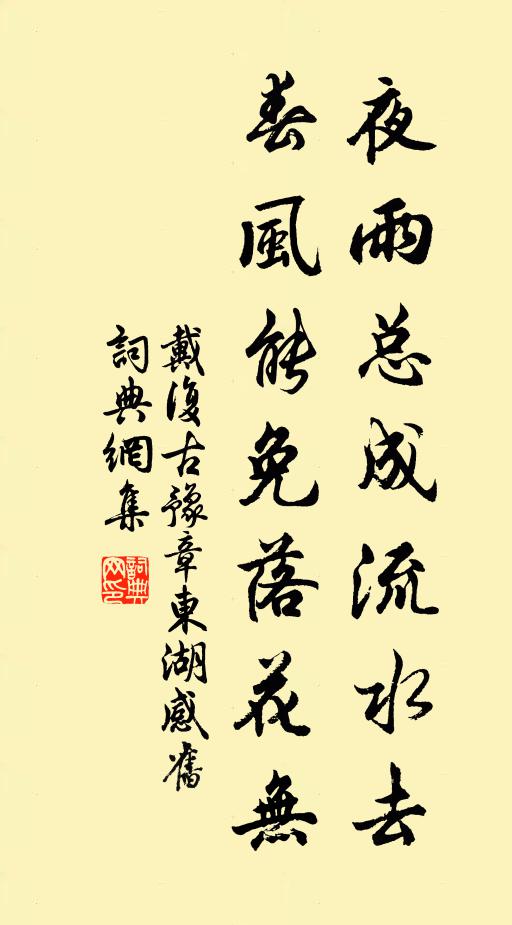 夜雨总成流水去
春風能免落花無
戴復古豫章東湖感舊
詞典網集
詞典網印